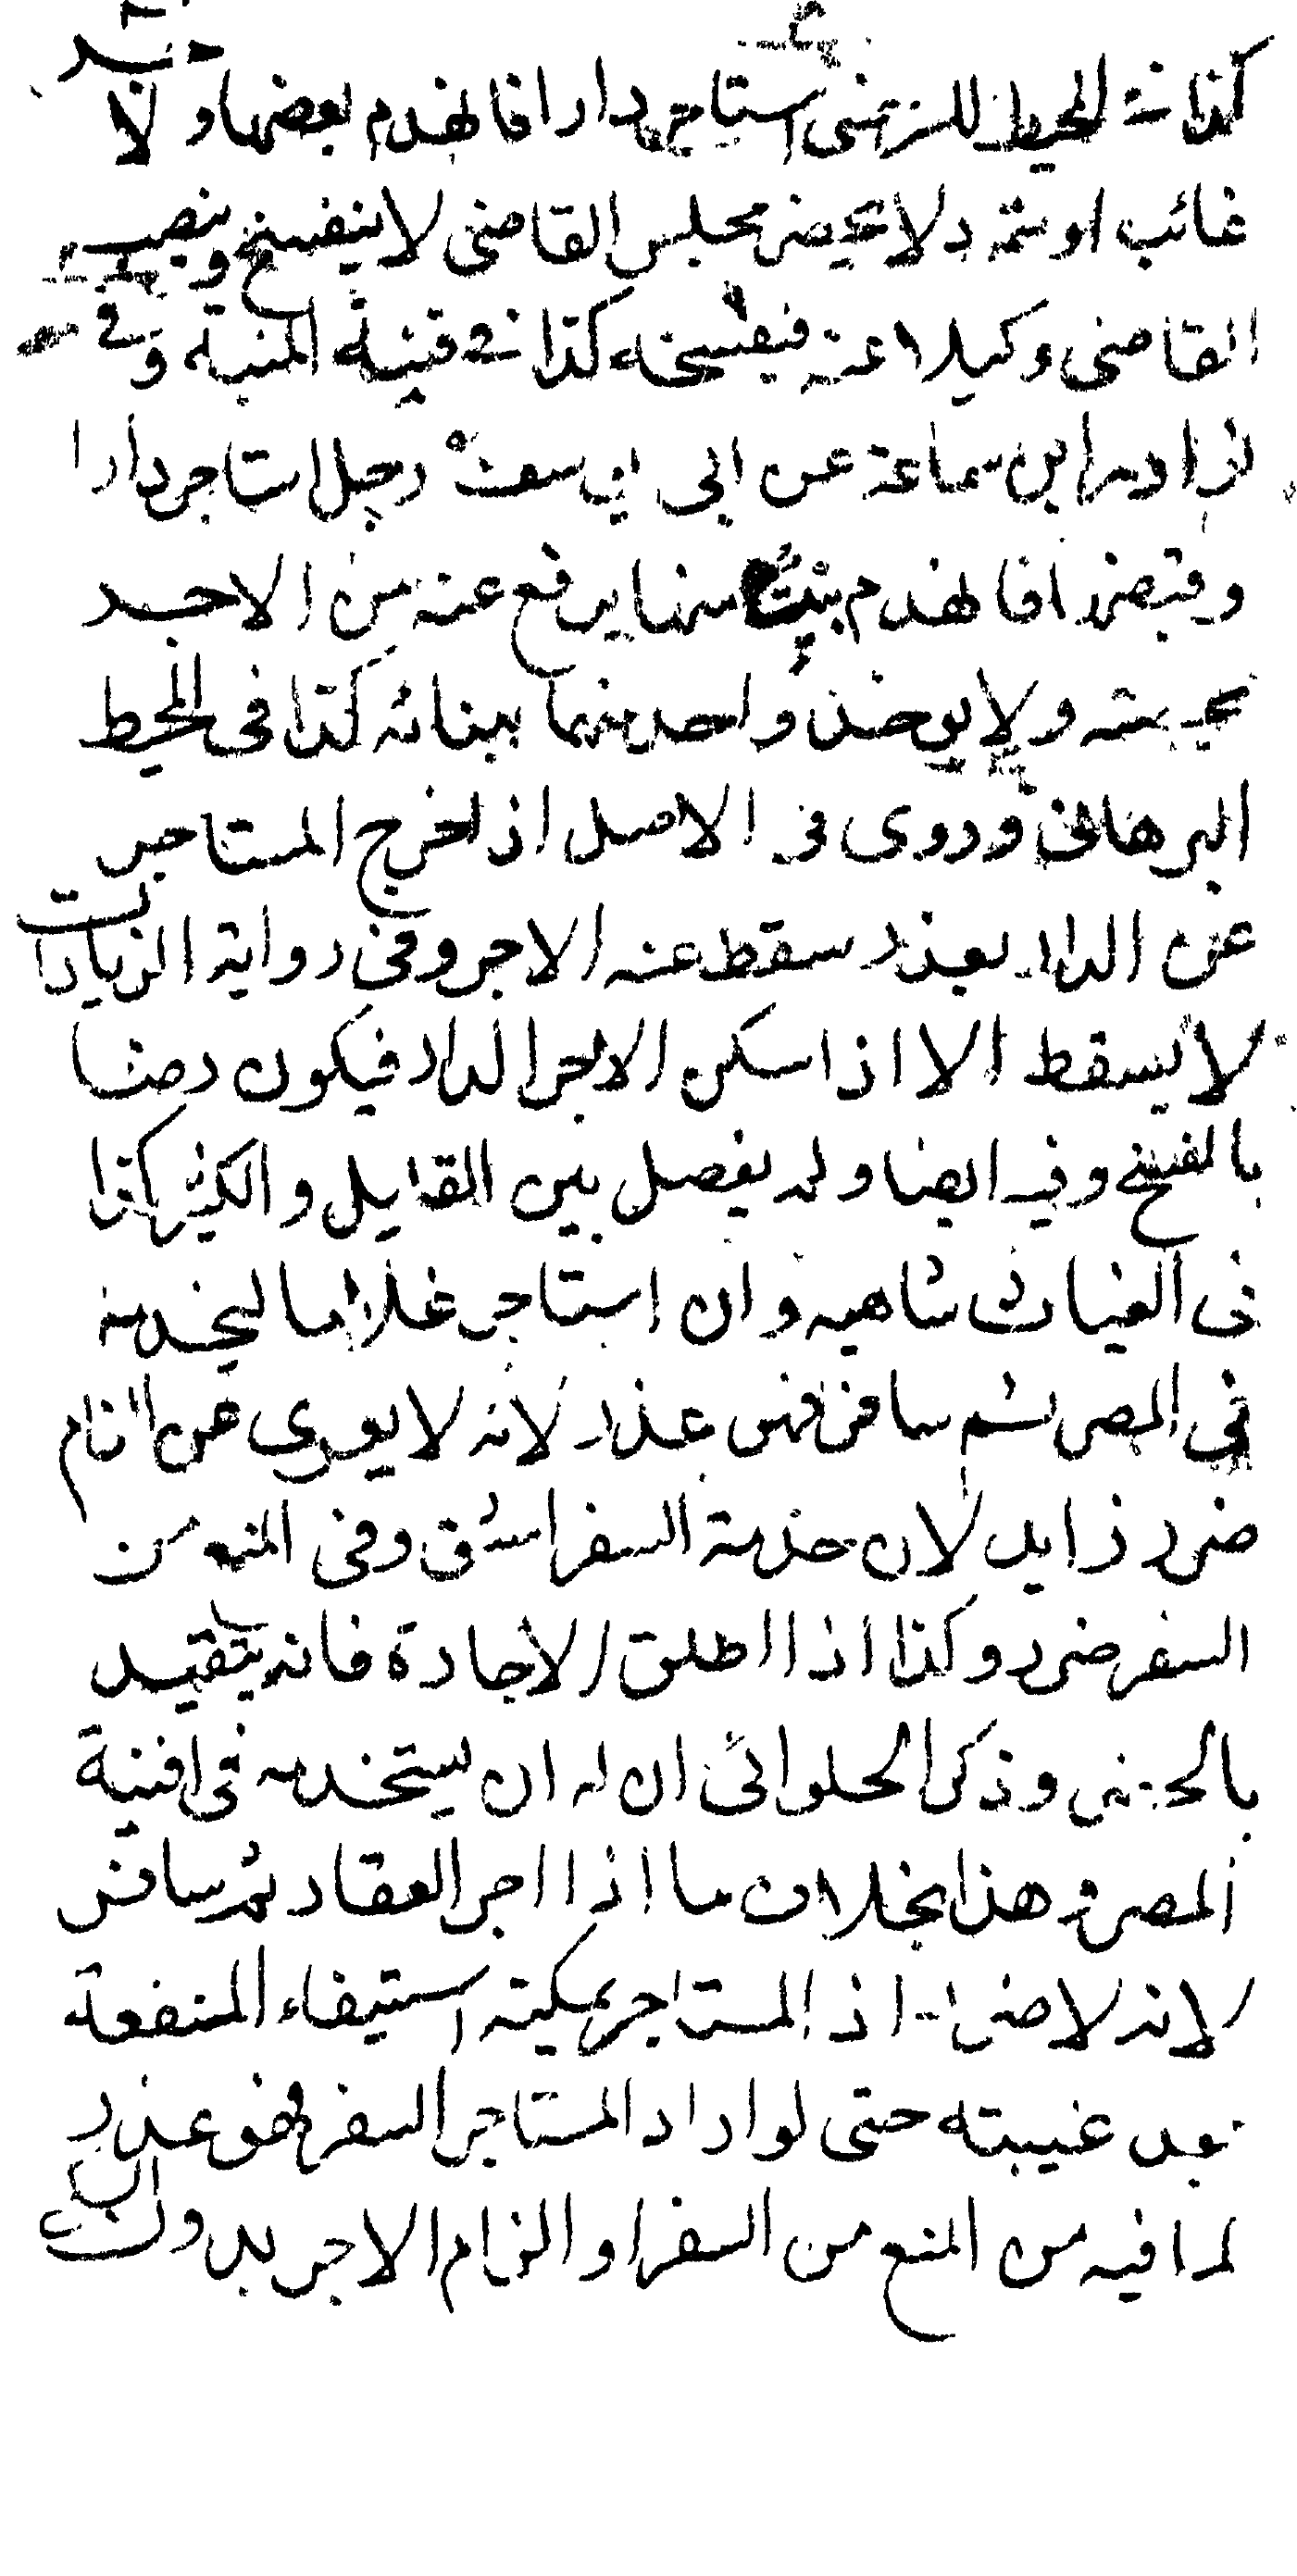 كذا في المحيط للسرخسي استاجر دارا فانهدم بعضها ولا
غائب او متمرد لا يحضر مجلس القاضي لا ينفسخ وينصب
القاضي وكيلا عنه فيفسخه كذا في قنية المنية وفي
نوادر ابن سماعة عن ابي يوسف رجل استاجر دارا
وقبضها فانهدم بيت منها يرفع عنه من الاجر
بحصته ولا يوخذ واحد منهما ببنائه كذا في المحيط
البرهاني وروى في الاصل اذا خرج المستاجر
عن الدار بعذر سقط عنه الاجر وفي رواية الزيادات
لا يسقط الا اذا سكن الاجر الدار فيكون رضا
بالفسخ وفيه ايضا ولم يفصل بين القليل والكثير كذا
في الغياث شاهيه وان استاجر غلاما ليخدمه
في المصر ثم سافر فهو عذر لانه لا يعرى عن الزام
ضرر زايد لان خدمة السفر اشق وفي المنع من
السفر ضرر وكذا اذا اطلق الاجارة فانه يتقيد
بالحضر وذكر الحلوائي ان له ان يستخدمه في افنية
المصر وهذا بخلاف ما اذا اجر العقار ثم سافر
لانه لا ضرر اذ المستاجر يمكنه استيفاء المنفعة
بعد غيبته حتى لو اراد المستاجر السفر فهو عذر
لما فيه من المنع من السفر او الزام الاجر بدون